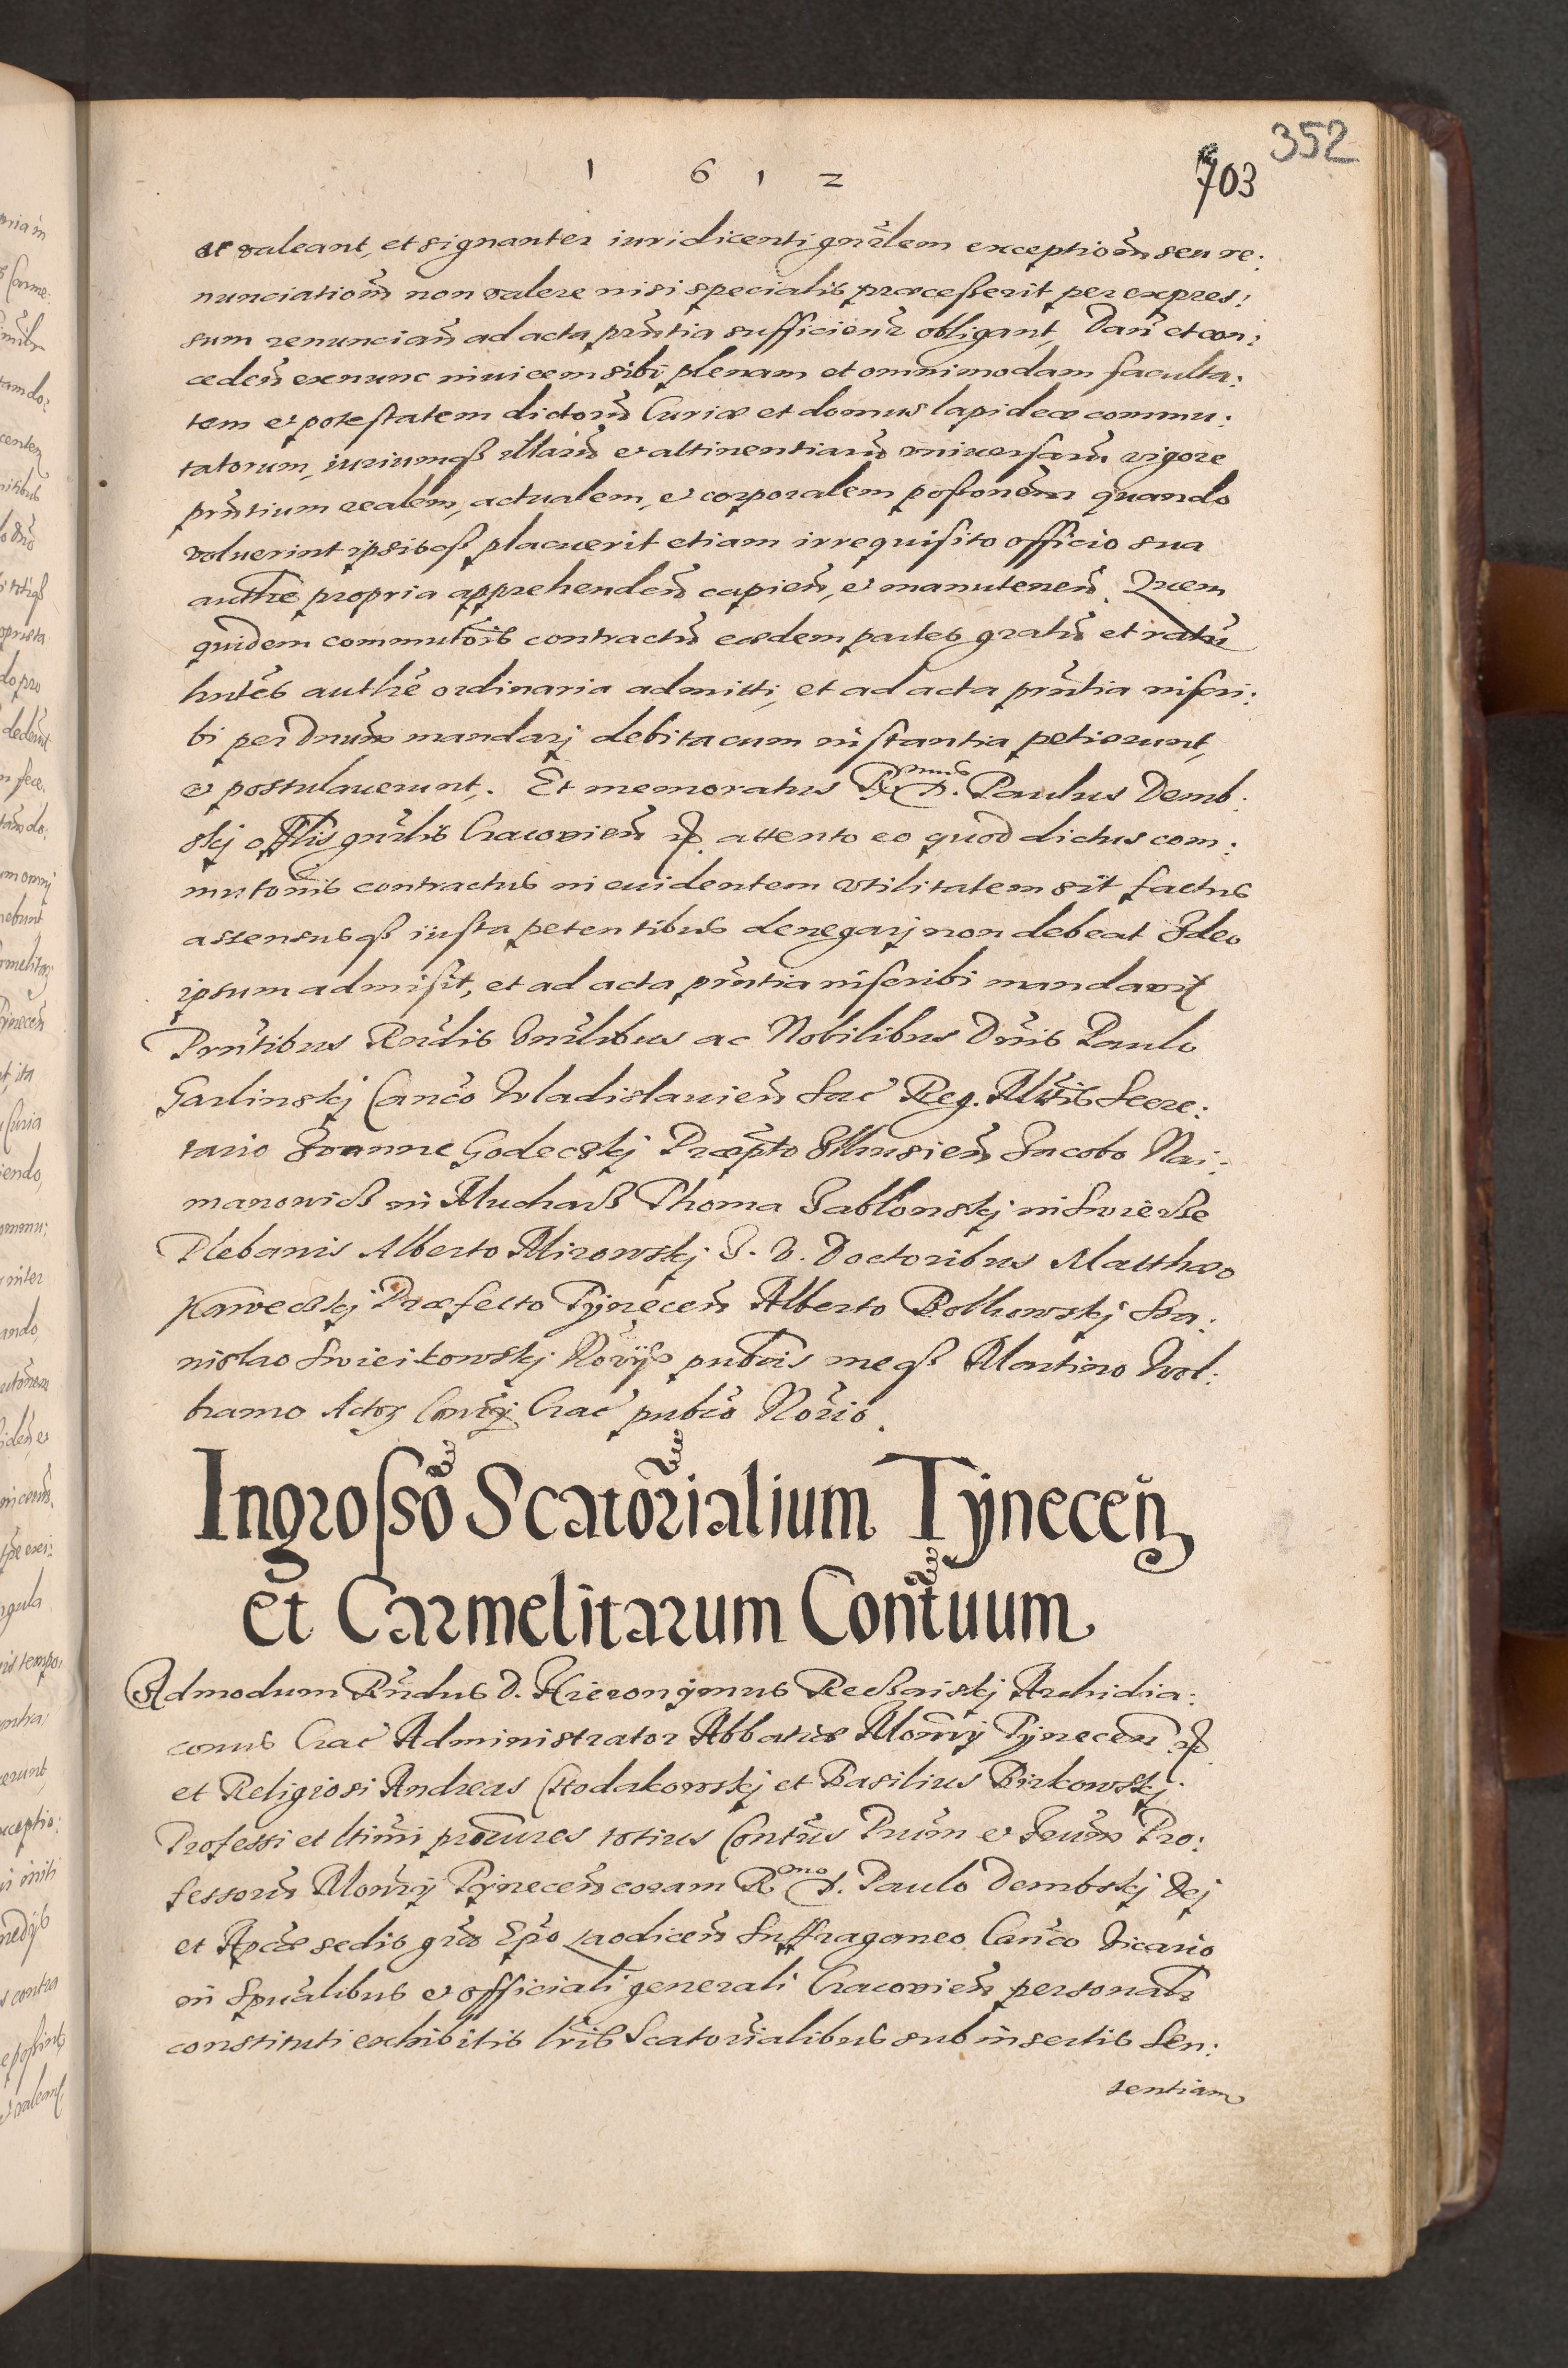 352
1 6 1 2
703
et valeant, et signanter iuridicenti gnrãlem exceptioñ seu re:
nunciatioñ non valere nisi specialis præcesserit per expres:
sum renunciañ ad acta prñtia sufficienr̃ obligant, Dañ et con:
cedeñ exnunc inuicem sibi plenam et omnimodam faculta:
tem et potestatem dictorũ Curiæ et domus lapideæ commu:
tatorum, iuriumqß illarũ et attinentiarũ vniuersarũ vigore
prñtium realem, actualem, et corporalem possonẽm quando
voluerint ipsisqß placuerit etiam irrequisito officio sua
authẽ propria apprehendeñ capieñ, et manuteneñ. Quem
quidem commutõis contractũ eædem partes gratũ et ratũ
hntẽs authẽ ordinaria admitti, et ad acta prñtia inscri:
bi per Dnum mandarj debita cum instantia petierunt,
et postulauerunt. Et memoratus Rmus D. Paulus Demb:
skj offlis gnrãlis Cracovieñ attento eo quod dictus com:
mutonis contractus in euidentem vtilitatem sit factus
assensusqß iusta petentibus denegarj non debeat Ideo
ipsum admisit, et ad acta prñtia inscribi mandavit
Prñtibus Rñdis Vnrãlibus ac Nobilibus Dnis Paulo
Garlinskj Cancõ Wladislauieñ Sac̃ Reg. Mttis Secre:
tario Joanne Godecskj Præpto Ilkusieñ Jacobo Nai:
manowicß in Mucharß Thoma Jablonskj in
Plebanis Alberto Mirowskj I. V. Doctoribus Matthæo
Kaweckj Præfecto Tynẽceñ Alberto Bolkowskj Sta:
nislao Swieikowskj Norijs publis meqß Martino Wol:
bramo Crac̃ publcõ Norio.
Ingrossõ Scatorialium Tÿneceñ
et Carmelitarum Contuum
Admodum Rñdus D. Hieronÿmus Recßaiskj Archidia:
conus Crac̃ Administrator Abbatiæ Monrÿ Tÿneceñ
et Religiosi Andreas Chodakowskj et Basilius Birkowskj
Professi et ltimi procures totius Contũs Prũm et Frũm Pro:
fessorũ Monrÿ Tÿneceñ coram Rmo D. Paulo Dembskj Dej
et Apcæ sedis grã Epõ Laodiceñ Suffraganeo Cancõ Vicario
in Spualibus et officiali generali Cracovieñ personalr̃
constituti exhibitis lris Scatorialibus sub insertis Sen:
tentiam